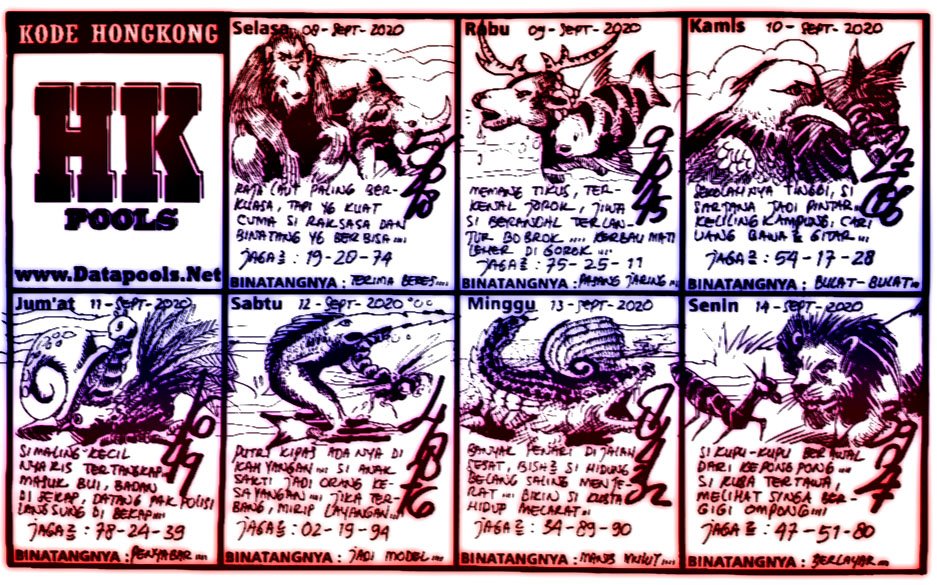 KODE HONGKONG
HK
POOLS
www.Datapools.Net
Selasa 08-SEPT-2020
RAJA LAUT PALING BER-
KUASA, TAPI YG KUAT
CUMA SI RAKSASA DAN
BINATANG YG BERBISA....
JAGA2 : 19-20-74
BINATANGNYA : TERIMA BERES...
Rabu 09-SEPT-2020
MEMANG TIKUS, TER-
KENAL JOROK, JIWA
SI BERANDAL TERLAN-
TUR BOBROK .... KERBAU MATI
LEHER DI GOROK ....
JAGA2 : 75-25-11
BINATANGNYA : PASANG JARING...
Kamis 10-SEPT-2020
SEKOLAHNYA TINGGI, SI
SARTANA JADI PINTAR..
KELILING KAMPUNG, CARI
UANG BAWA2 GITAR...
JAGA2 : 54-17-28
BINATANGNYA : BULAT-BULAT...
Jum'at 11-SEPT-2020
SI MALING KECIL
NYARIS TERTANGKAP..
MASUK BUI, BADAN
DI SEKAP, DATANG PAK POLISI
LANGSUNG DI BEKAP....
JAGA2 : 78-24-39
BINATANGNYA : PENYABAR....
Sabtu 12-SEPT-2020
PUTRI KIPAS ADANYA DI
KAHYANGAN... SI ANAK
SAKTI JADI ORANG KE-
SAYANGAN... JIKA TER-
BANG, MIRIP LAYANGAN....
JAGA2 : 02-19-94
BINATANGNYA : JADI MODEL...
Minggu 13-SEPT-2020
BANYAK PENARI DI JALAN
SESAT, BISA2 SI HIDUNG
BELANG SALING MENJE-
RAT... BIKIN SI KUSTA
HIDUP MELARAT..
JAGA2 : 34-89-90
BINATANGNYA : MANIS
Senin 14-SEPT-2020
SI KUPU-KUPU BERAWAL
DARI KEPONGPONG...
SI KUBA TERTAWA,
MELIHAT SINGA BER-
GIGI OMPONG....
JAGA2 : 47-51-80
BINATANGNYA : BERLAYAR...